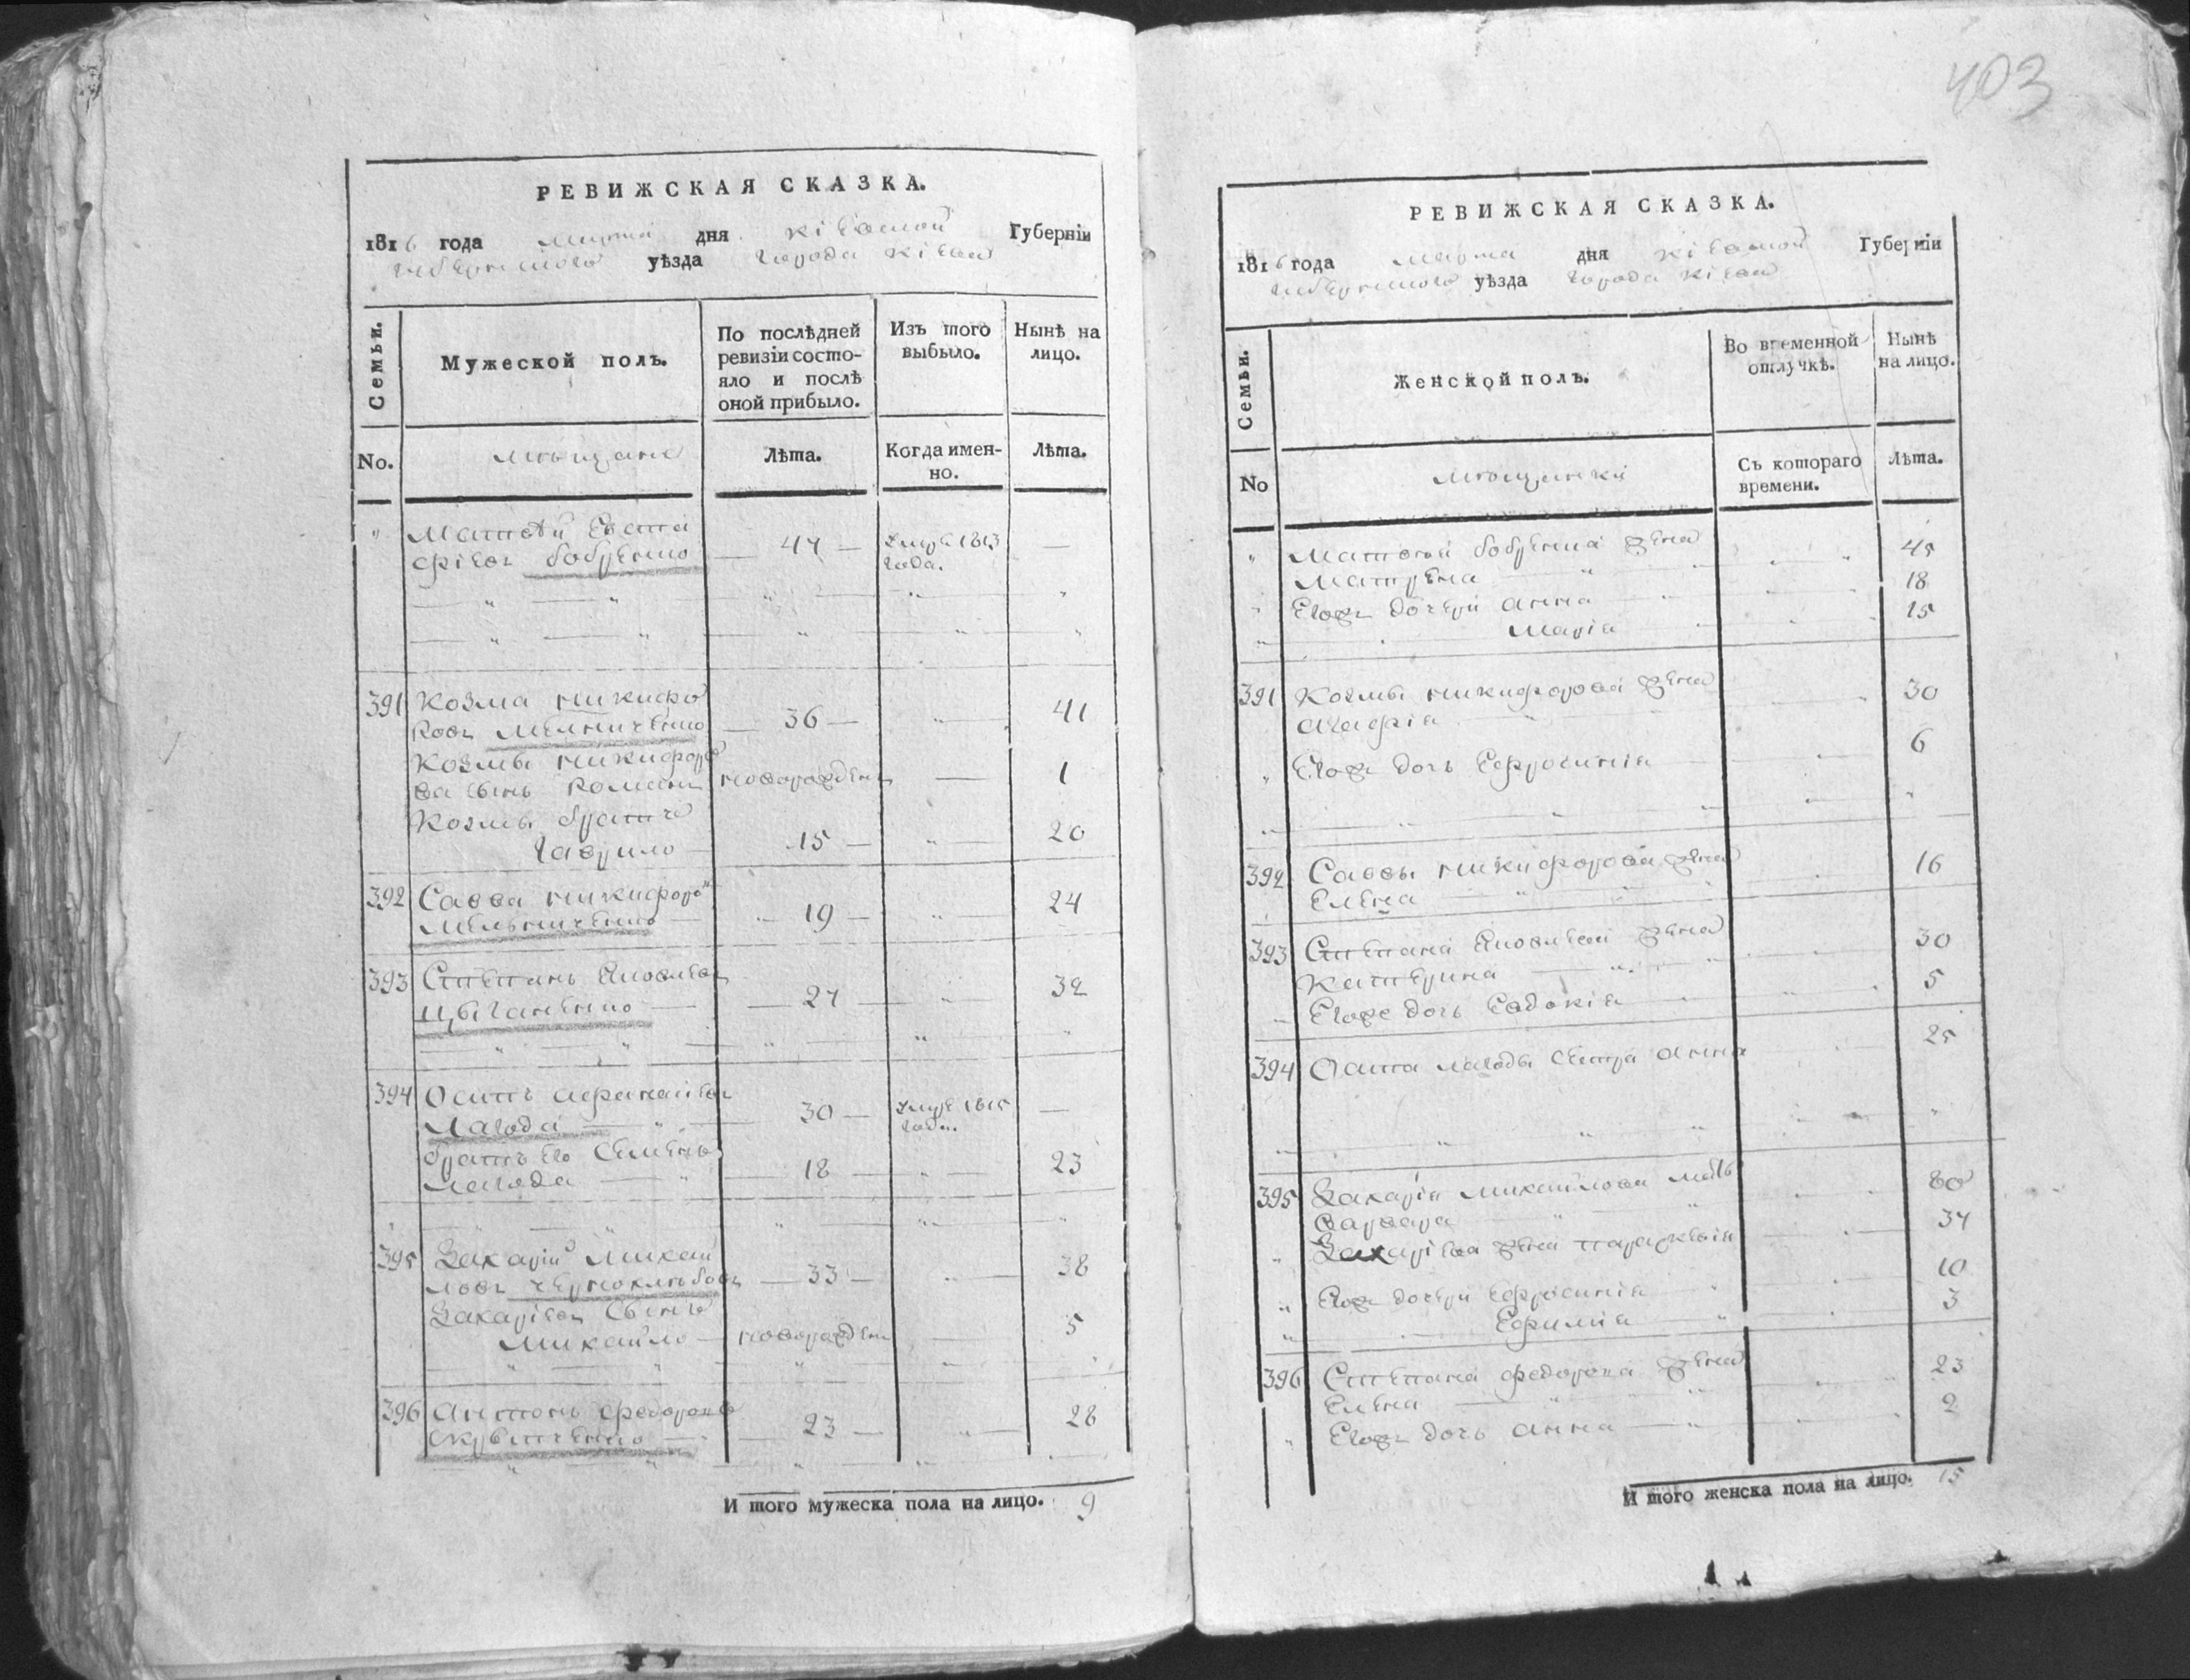 403
РЕВИЖСКАЯ СКАЗКА.
1816 года марта дня Кіевской Губерніи
уѣзда города Кіева
Семьи. Мужеской полъ. По послѣдней ревизіи состояло и послѣ оной прибыло. Изъ того выбыло. Нынѣ на лицо.
No. мѣщане Лѣта. Когда именно. Лѣта.
" Матвѣй Евста
фіевъ Бобренко — 47 — умре 1813 года. —
391 Козма Никифо
ровъ Мелниченко — 36 — " — 41
Козмы Никифоро
ва сынъ Романъ новорожденъ — 1
Козмы братъ
Гаврило 15 — " — 20
392 Савва Никифоро
Мельниченко — 19 — " — 24
393 Степанъ Яковлевъ
Цыганенко — 27 — " — 32
394 Осипъ Афанасіевъ
Лагода — 30 — умре 1815 года. —
братъ его Семенъ
Лагода — 18 — " — 23
395 Захарій Михай
ловъ Чернохлѣбовъ — 33 — " — 38
Захаріевъ сынъ
Михайло — новорожденъ — 5
396 Антонъ Федоровъ
— 23 — " — 28
И того мужеска пола на лицо. 9
РЕВИЖСКАЯ СКАЗКА.
1816 года марта дня Кіевской Губерніи
уѣзда города Кіева
Семьи. Женской полъ. Во временной отлучкѣ. Нынѣ на лицо.
No мѣщанки Съ котораго времени. Лѣта.
" Матвея Бобренка жена
Матрена — " 45
" Егожъ дочери Анна — 18
" Марія 15
391 Козмы Никифорова жена
Агафія — " 30
" Егожъ дочь Ефросинія 6
392 Саввы Никифорова жена
Елена — " 16
393 Степана Яковлева жена
Катерина — " 30
Егоже дочь Евдокія 5
394 Осипа Лагоды сестра Анна 25
395 Захарія Михайлова мать
Варвара 60
" Захаріева жена Параскевія 37
" Егожъ дочери Ефросинія 10
" Ефимія 3
396 Степана Федорова жена
Елена — " 23
" Егожъ дочь Анна — " 2
И того женска пола на лицо. 15